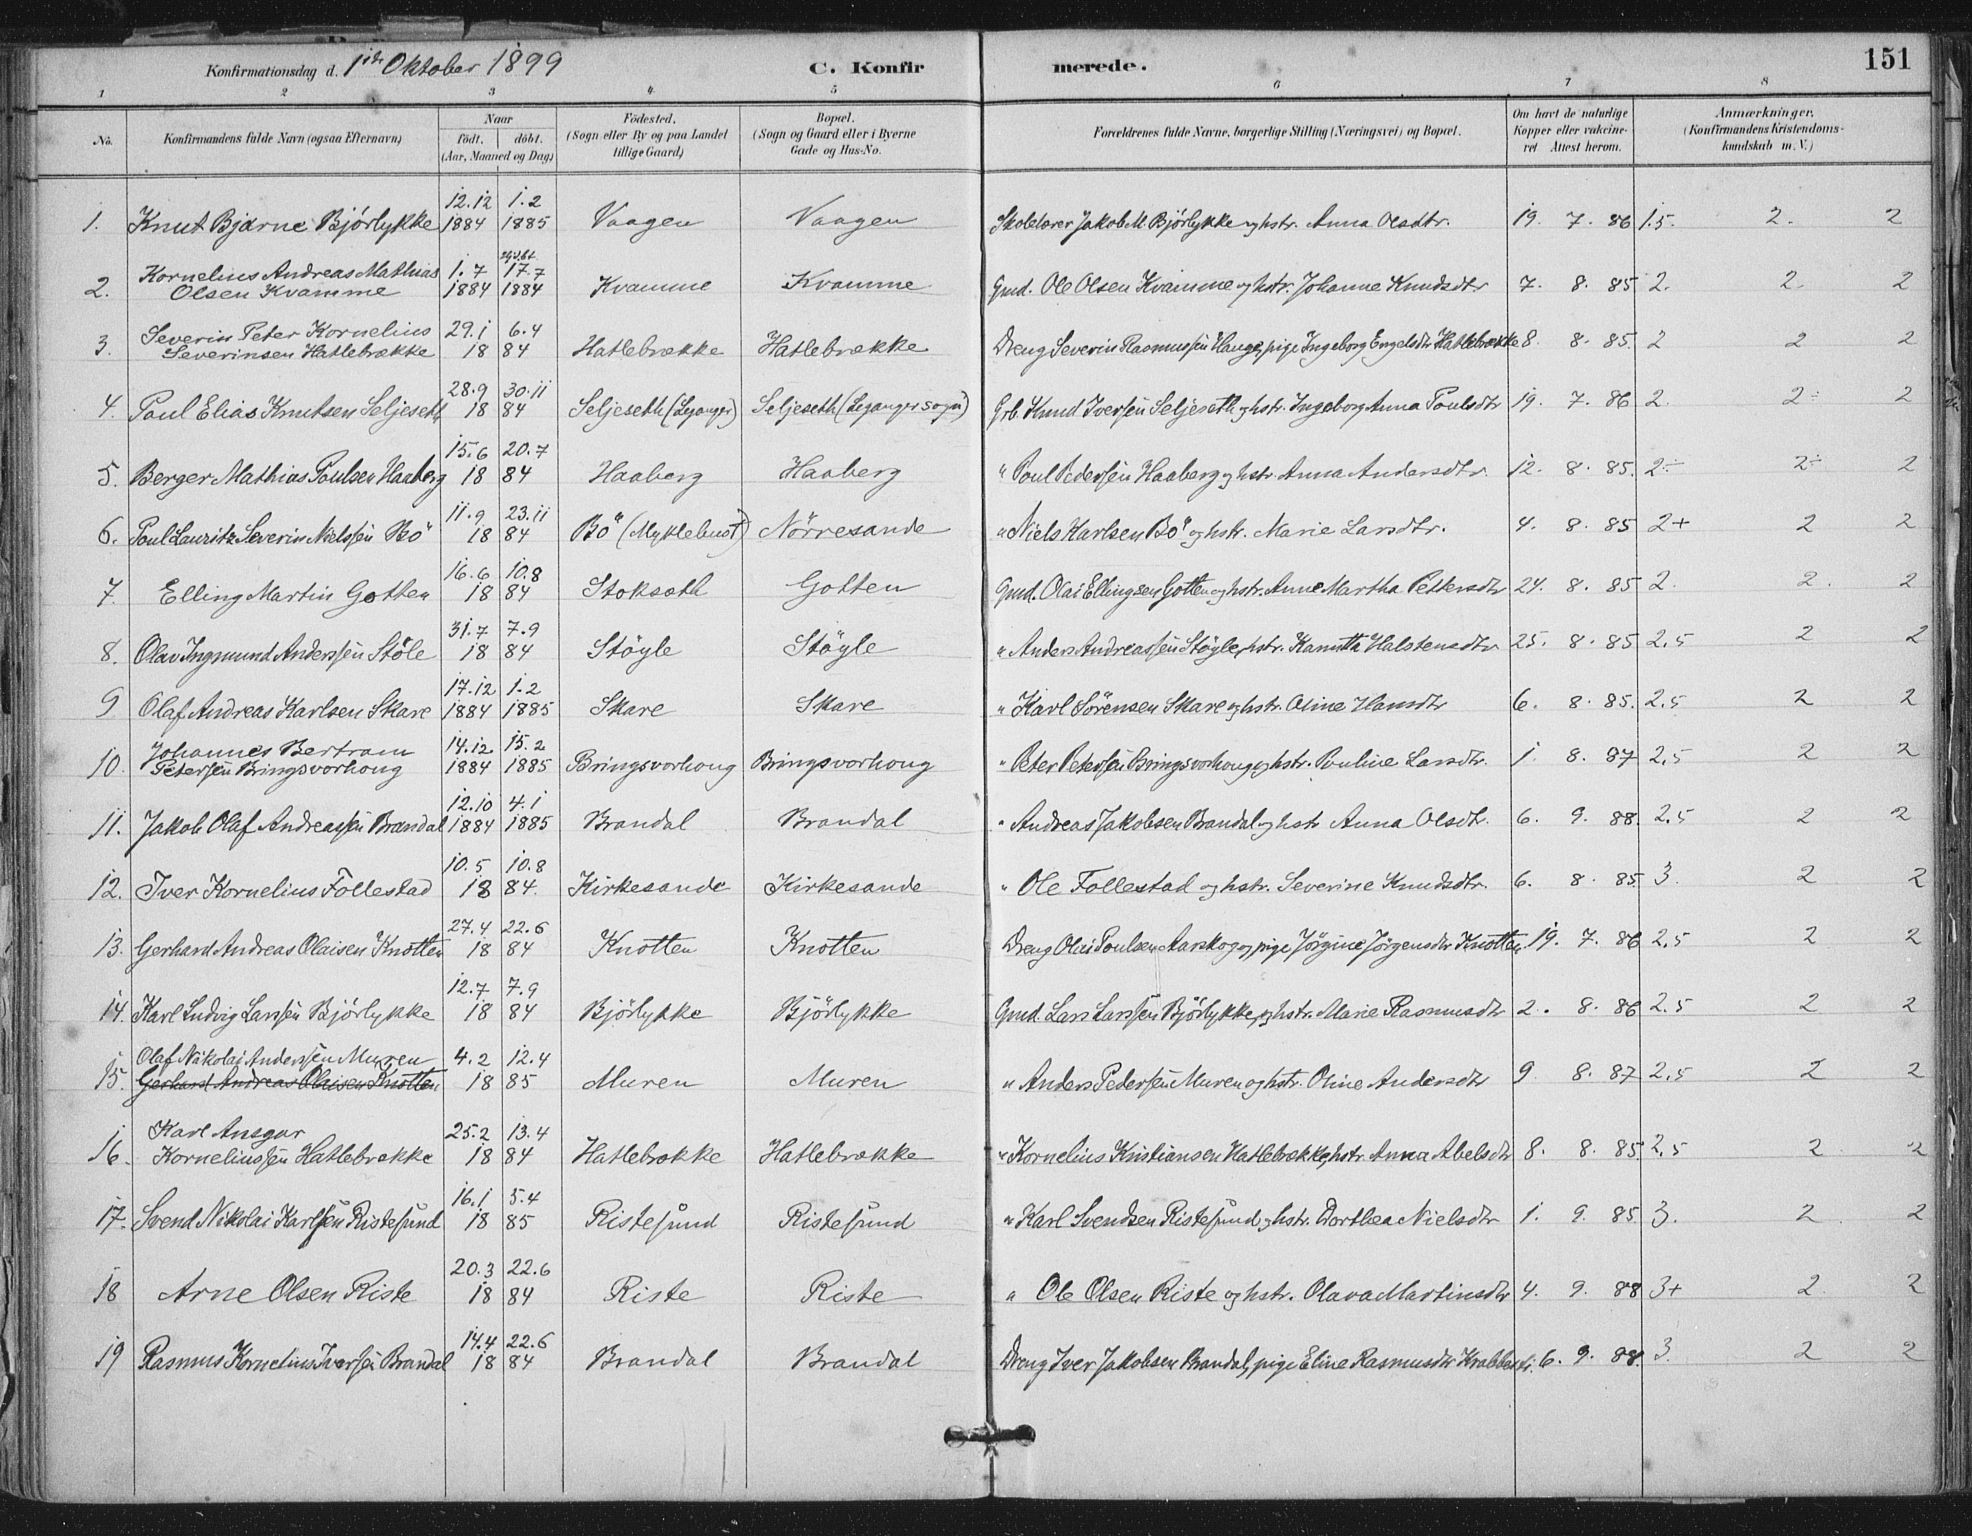 Konfirmationsdag d. 1ste Oktober 1899 C. Konfirmerede. 151
1 2 3 4 5 6 7 8
No. Konfirmandens fulde Navn (ogsaa Efternavn) Naar født, døbt. (Aar, Maaned og Dag) Fødested. (Sogn eller By og paa Landet tillige Gaard) Bopæl. (Sogn og Gaard eller i Byerne Gade og Hus-No. Forældrenes fulde Navne, borgerlige Stilling (Næringsvei) og Bopæl. Om havt de naturlige Kopper eller vakcineret Attest herom. Anmærkninger. (Konfirmandens Kristendomskundskab m. V.)
1. Knut Bjarne Bjørlykke 12.12 1884 1.2 1885 Vaagen Vaagen Skolelærer Jakob M. Bjørlykke og hstr. Anna Olsdtr. 19. 7. 86 1.5. 2. 2
2. Kornelius Andreas Mathias Olsen Kvamme 1.7 1884 17.7 1884 Kvamme Kvamme Gmd. Ole Olsen Kvamme og hstr. Johanne Knudsdtr 7. 8. 85 2. 2. 2
3. Severin Peter Kornelius Severinsen Hatlebrække 29.1 6.4 1884 Hatlebrække Hatlebrække Dreng Severin Rasmussen Hauge, pige Ingeborg Engelsdtr Hatlebrække 8. 8. 85. 2 2 2
4. Paul Elias Knutsen Seljeseth 28.9 30.11 1884 Seljeseth (Leganger) Seljeseth (Leganger sogn) Grb. Knud Iversen Seljeseth og hstr. Ingeborg Anna Poulsdtr 19. 7. 86 2. 2÷ 2
5. Berger Mathias Poulsen Haaberg 15.6 20.7 1884 Haaberg Haaberg " Poul Pedersen Haaberg og hstr. Anna Andersdtr. 12. 8. 85. 2÷ 2÷ 2
6. Poul Lauritz Severin Nielssen Bö 11.9 23.11 1884 Bö (Myklebust) Nörresande " Niels Karlsen Bö og hstr. Marie Larsdtr. 4. 8. 85 2+ 2 2
7. Elling Martin Gotten 16.6 10.8 1884 Stokseth Gotten Gmd. Olai Ellingsen Gotten og hstr. Anne Martha Pettersdtr 24. 8. 85 2. 2. 2
8. Olav Ingmund Anderssen Stöle 31.7 7.9 1884 Stöyle Stöyle " Anders Andreassen Stöyle, hstr. Kanutta Halstensdtr 25. 8. 85 2,5 2 2
9 Olaf Andreas Karlsen Skare 17.12 1884 1.2 1885 Skare Skare " Karl Sörensen Skare og hstr. Oline Hansdtr 6. 8. 85. 2,5 2 2
10. Johannes Bertram Petersen Bringsvorhoug 14.12 1884 15.2 1885 Bringsvorhoug Bringsvorhoug " Peter Petersen Bringsvorhoug og hstr. Pouline Larsdtr. 1. 8. 87 2,5 2 2
11. Jakob Olaf Andreassen Brandal 12.10 1884 4.1 1885 Brandal Brandal " Andreas Jakobsen Brandal og hstr Anna Olsdtr. 6. 9. 88. 2,5 2 2
12. Iver Kornelius Follestad 10.5 10.8 1884. Kirkesande Kirkesande " Ole Follestad og hstr. Severine Knudsdtr. 6. 8. 85. 3. 2 2
13. Gerhard Andreas Olaisen Knotten 27.4 22.6 1884 Knotten Knotten Dreng Olai Poulsen Aarskog og pige Jörgine Jörgensdtr Knotten 19. 7. 86 2,5 2 2
14. Karl Ludvig Larssen Bjørlykke 12.7 7.9 1884 Bjørlykke Bjørlykke Gmd. Lars Larssen Bjørlykke, og hstr. Marie Rasmusdtr 2. 8. 86 2,5 2 2
15. Olaf Nikolai Anderssen Muren Gerhard Andreas Olaisen Knotten 4.2 12.4 1885 Muren Muren " Anders Pedersen Muren og hstr. Oline Andersdtr 9 8. 87 2,5 2 2
16. Karl Ansgar Korneliussen Hatlebrække 25.2 13.4 1884 Hatlebrække Hatlebrække " Kornelius Kristiansen Hatlebrække, hstr. Anna Abelsdtr 8. 8. 85 2,5 2 2
17. Svend Nikolai Karlsen Ristesund 16.1 5.4 1885 Ristesund Ristesund " Karl Svendsen Ristesund og hstr. Dorthea Nielsdtr 1. 9. 85 3. 2 2
18 Arne Olsen Riste 20.3 22.6 1884 Riste Riste " Ole Olsen Riste og hstr. Olava Martinsdtr 4. 9. 88 3+ 2 2
19 Rasmus Kornelius Iversen Brandal 14.4 22.6 1884 Brandal Brandal Dreng Iver Jakobsen Brandal, pige Eline Rasmusdtr 6. 9. 88. 3. 2 2